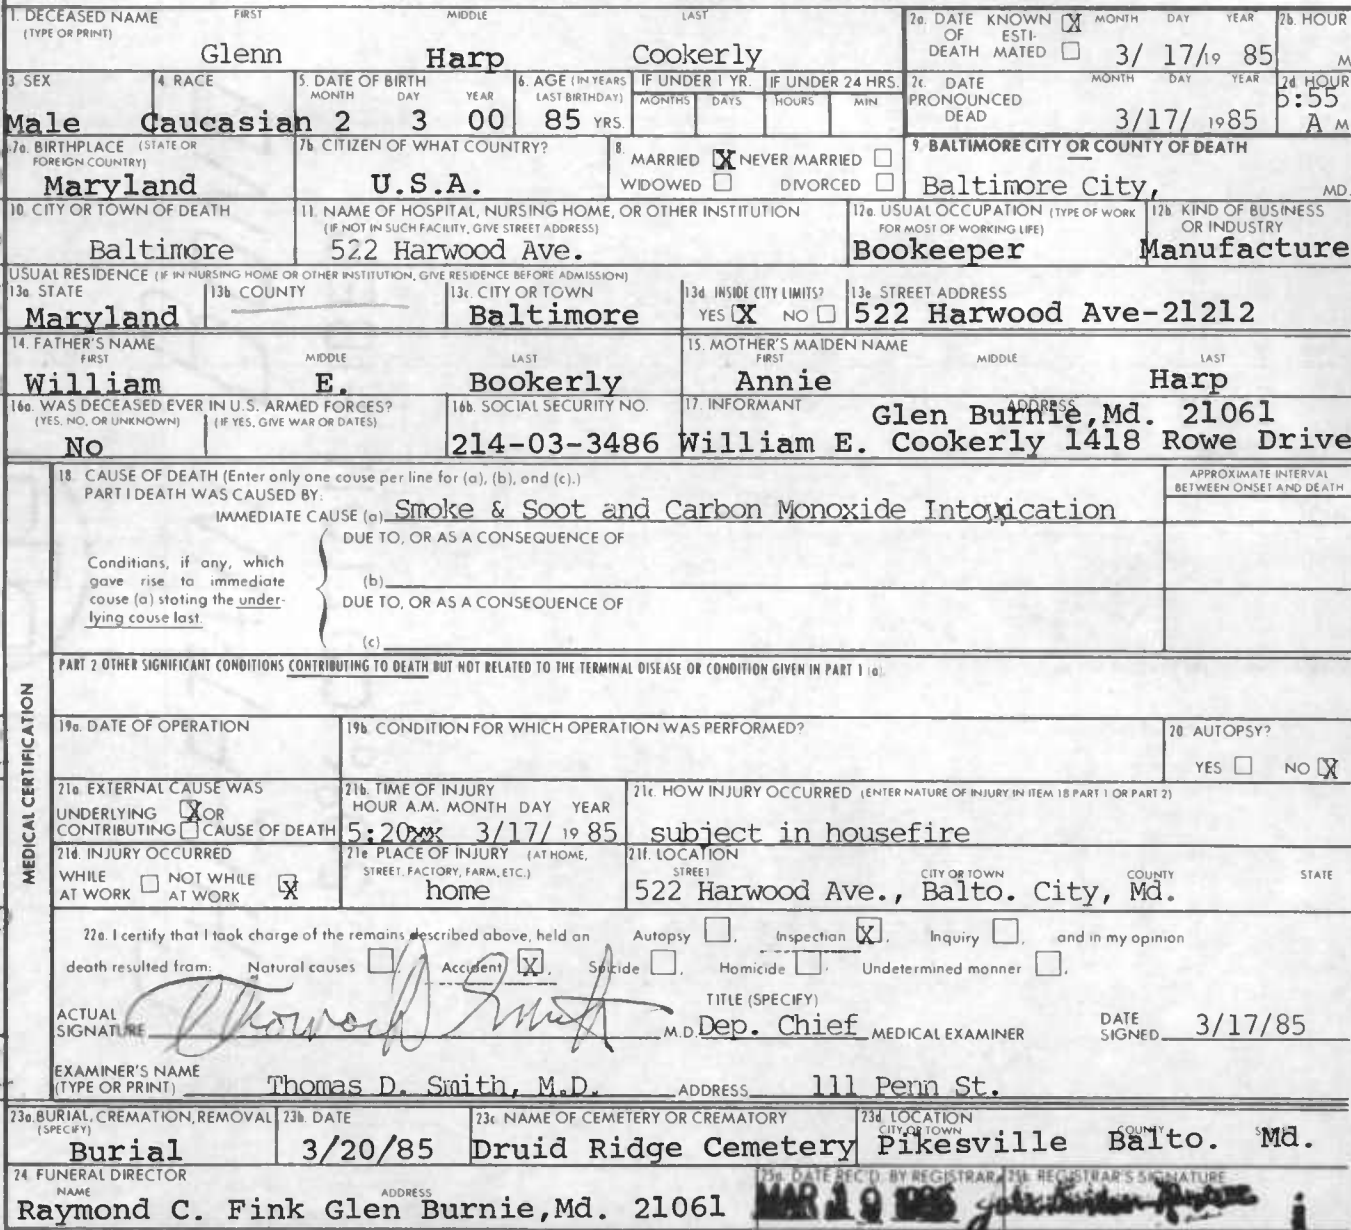 1. DECEASED NAME FIRST MIDDLE LAST
(TYPE OR PRINT)
Glenn Harp Cookerly
2a. DATE KNOWN X MONTH DAY YEAR
OF ESTI-
DEATH MATED
3/ 17/19 85
2b. HOUR
M
3 SEX
Male
4. RACE
Caucasian
5. DATE OF BIRTH
MONTH DAY YEAR
2 3 00
6. AGE (IN YEARS
LAST BIRTHDAY)
85 YRS.
IF UNDER 1 YR.
MONTHS DAYS
IF UNDER 24 HRS.
HOURS MIN
2c. DATE MONTH DAY YEAR
PRONOUNCED
DEAD
3/17/ 1985
2d HOUR
5:55
A M
7a. BIRTHPLACE (STATE OR
FOREIGN COUNTRY)
Maryland
7b. CITIZEN OF WHAT COUNTRY?
U.S.A.
8.
MARRIED X NEVER MARRIED
WIDOWED DIVORCED
9. BALTIMORE CITY OR COUNTY OF DEATH
Baltimore City, MD.
10. CITY OR TOWN OF DEATH
Baltimore
11. NAME OF HOSPITAL, NURSING HOME, OR OTHER INSTITUTION
(IF NOT IN SUCH FACILITY, GIVE STREET ADDRESS)
522 Harwood Ave.
12a. USUAL OCCUPATION (TYPE OF WORK
FOR MOST OF WORKING LIFE)
Bookeeper
12b. KIND OF BUSINESS
OR INDUSTRY
Manufacture
USUAL RESIDENCE (IF IN NURSING HOME OR OTHER INSTITUTION, GIVE RESIDENCE BEFORE ADMISSION)
13a. STATE
Maryland
13b. COUNTY
13c. CITY OR TOWN
Baltimore
13d. INSIDE CITY LIMITS?
YES X NO
13e STREET ADDRESS
522 Harwood Ave-21212
14. FATHER'S NAME
FIRST MIDDLE LAST
William E. Bookerly
15. MOTHER'S MAIDEN NAME
FIRST MIDDLE LAST
Annie Harp
16a. WAS DECEASED EVER IN U.S. ARMED FORCES?
(YES, NO, OR UNKNOWN) (IF YES, GIVE WAR OR DATES)
No
16b. SOCIAL SECURITY NO.
214-03-3486
17. INFORMANT ADDRESS
Glen Burnie,Md. 21061
William E. Cookerly 1418 Rowe Drive
MEDICAL CERTIFICATION
18. CAUSE OF DEATH (Enter only one couse per line for (a), (b), ond (c).)
PART I DEATH WAS CAUSED BY:
IMMEDIATE CAUSE (a) Smoke & Soot and Carbon Monoxide Intoxication
APPROXIMATE INTERVAL
BETWEEN ONSET AND DEATH
DUE TO, OR AS A CONSEQUENCE OF
Conditions, if any, which
gove rise to immediate
couse (a) stoting the under-
lying couse last.
(b)
DUE TO, OR AS A CONSEQUENCE OF
(c)
PART 2 OTHER SIGNIFICANT CONDITIONS CONTRIBUTING TO DEATH BUT NOT RELATED TO THE TERMINAL DISEASE OR CONDITION GIVEN IN PART 1 (a)
19a. DATE OF OPERATION
19b. CONDITION FOR WHICH OPERATION WAS PERFORMED?
20. AUTOPSY?
YES NO X
21a EXTERNAL CAUSE WAS
UNDERLYING X OR
CONTRIBUTING CAUSE OF DEATH
21b. TIME OF INJURY
HOUR A.M. MONTH DAY YEAR
5:20xx 3/17/ 19 85
21c. HOW INJURY OCCURRED (ENTER NATURE OF INJURY IN ITEM 18 PART 1 OR PART 2)
subject in housefire
21d. INJURY OCCURRED
WHILE NOT WHILE
AT WORK AT WORK X
21e PLACE OF INJURY (AT HOME,
STREET, FACTORY, FARM, ETC.)
home
21f. LOCATION
STREET CITY OR TOWN COUNTY STATE
522 Harwood Ave., Balto. City, Md.
22a. I certify that I took charge of the remains described above, held an Autopsy , Inspection X , Inquiry , and in my opinion
death resulted from: Natural causes , Accident X , Suicide , Homicide , Undetermined monner ,
ACTUAL
SIGNATURE Thomas D Smith M.D.
TITLE (SPECIFY)
Dep. Chief MEDICAL EXAMINER
DATE
SIGNED 3/17/85
EXAMINER'S NAME
(TYPE OR PRINT) Thomas D. Smith, M.D. ADDRESS 111 Penn St.
23a. BURIAL, CREMATION, REMOVAL
(SPECIFY)
Burial
23b. DATE
3/20/85
23c. NAME OF CEMETERY OR CREMATORY
Druid Ridge Cemetery
23d. LOCATION
CITY OR TOWN COUNTY
Pikesville Balto. Md.
24. FUNERAL DIRECTOR
NAME ADDRESS
Raymond C. Fink Glen Burnie,Md. 21061
25a. DATE REC'D. BY REGISTRAR
MAR 19
25b. REGISTRAR'S SIGNATURE